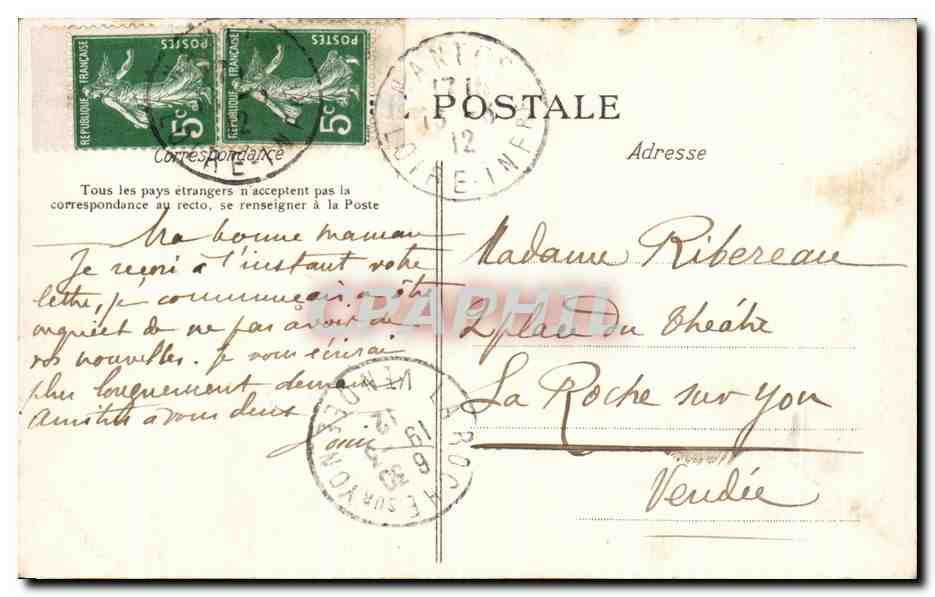 REPUBLIQUE FRANÇAISE
POSTES
5c
REPUBLIQUE FRANÇAISE
POSTES
5c
NANTES
12
LOIRE-INFRE
POSTALE
Correspondance
Adresse
Tous les pays étrangers n'acceptent pas la
correspondance au recto, se renseigner à la Poste
Ma bonne maman
Je reçois à l'instant votre
lettre, je commençais à être
inquiet de ne pas avoir de
vos nouvelles. je vous écrirai
plus longuement demain
Amitiés à vous deux
Madame Ribereau
2 place du Théâtre
La Roche sur Yon
Vendée
LA ROCHE SUR YON
VENDEE
CPAPHIL